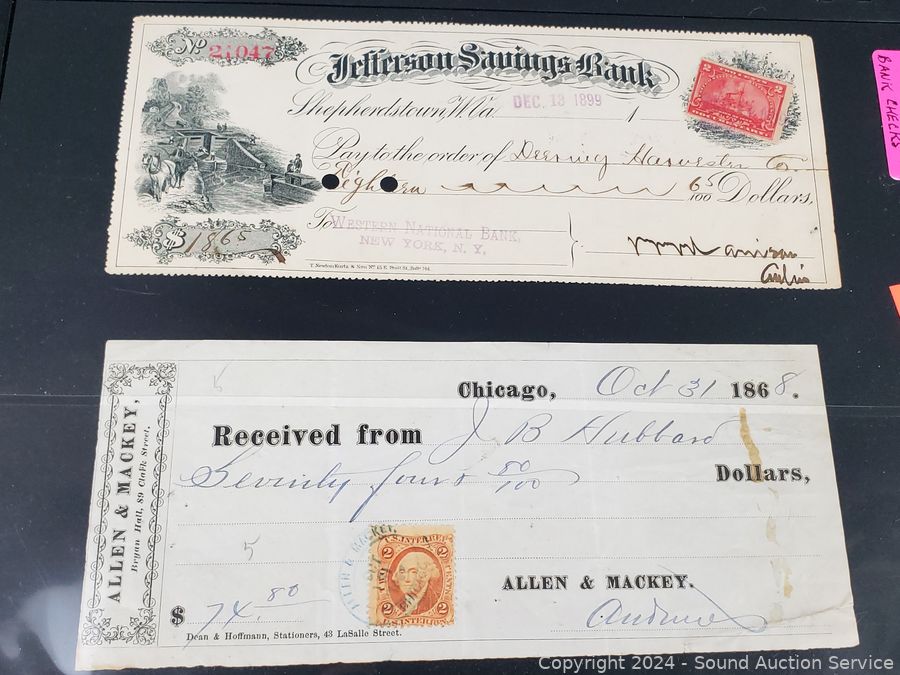 No 21047
Jefferson Savings Bank
Shepherdstown, W. Va. DEC. 13 1899
2
Pay to the order of Deering Harvester Co
Eighteen 65/100 Dollars,
To WESTERN NATIONAL BANK,
NEW YORK, N. Y.
$ 18 65
BANK CHECKS
Chicago, Oct 31 1868.
Received from J B Hubbard
Seventy four & 80/100 Dollars,
ALLEN & MACKEY,
Bryan Hall, 89 Clark Street.
5
U.S. INTER. REV.
2 2
2 CENTS 2
ALLEN & MACKEY.
$ 74.80
Dean & Hoffmann, Stationers, 43 LaSalle Street.
Copyright 2024 - Sound Auction Service